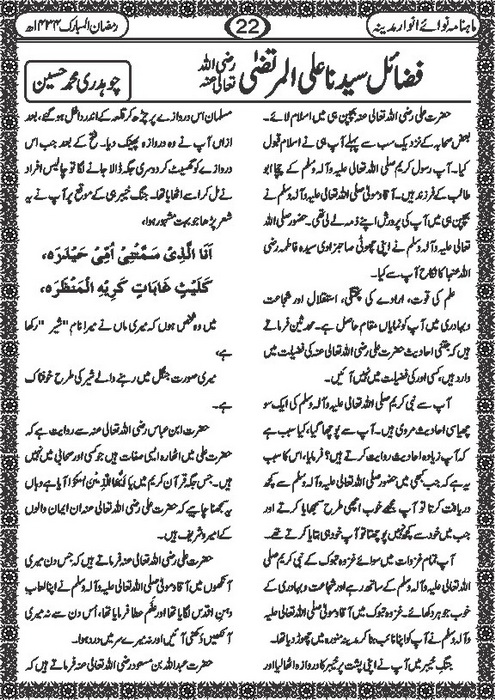 ماہنامہ نوائے انوار مدینہ
22
رمضان المبارک ۱۴۳۴ھ
فضائل سیدنا علی المرتضیٰ رضی اللہ تعالیٰ عنہ
چوہدری محمد حسین
حضرت علی رضی اللہ تعالیٰ عنہ بچپن ہی میں اسلام لائے۔
بعض صحابہ کے نزدیک سب سے پہلے آپ ہی نے اسلام قبول
کیا۔ آپ رسول کریم صلی اللہ تعالیٰ علیہ وآلہ وسلم کے چچا ابو
طالب کے فرزند ہیں۔ آقا و مولیٰ صلی اللہ تعالیٰ علیہ وآلہ وسلم نے
بچپن ہی میں آپ کی پرورش اپنے ذمہ لے لی تھی۔ حضور صلی اللہ
علیہ وآلہ وسلم نے اپنی چھوٹی صاحبزادی سیدہ فاطمہ رضی
اللہ عنہا کا نکاح آپ سے کیا۔
علم کی قوت، ارادے کی پختگی، استقلال اور شجاعت
و بہادری میں آپ کو نمایاں مقام حاصل ہے۔ محدثین فرماتے
ہیں کہ جتنی احادیث حضرت علی رضی اللہ تعالیٰ عنہ کی فضیلت میں
وارد ہیں، کسی اور کی فضیلت میں نہیں آئیں۔
آپ سے نبی کریم صلی اللہ تعالیٰ علیہ وآلہ وسلم کی ایک سو
چھیاسی احادیث مروی ہیں۔ آپ سے پوچھا گیا، کیا سبب ہے
کہ آپ زیادہ احادیث روایت کرتے ہیں؟ فرمایا، اس کا سبب
یہ ہے کہ جب کبھی میں حضور صلی اللہ تعالیٰ علیہ وآلہ وسلم سے کچھ
دریافت کرتا تو آپ مجھے خوب اچھی طرح سمجھایا کرتے اور
جب میں خود سے کچھ نہیں پوچھتا تو آپ خود ہی بتایا کرتے تھے۔
آپ تمام غزوات میں سوائے غزوہ تبوک کے نبی کریم صلی
اللہ تعالیٰ علیہ وآلہ وسلم کے ساتھ رہے اور شجاعت و بہادری کے
خوب جوہر دکھائے۔ غزوہ تبوک میں آقا و مولیٰ صلی اللہ تعالیٰ علیہ
وآلہ وسلم نے آپ کو اپنا نائب بنا کر مدینہ منورہ میں چھوڑ دیا تھا۔
جنگ خیبر میں آپ نے اپنی پشت پر خیبر کا دروازہ اٹھا لیا اور
مسلمان اس دروازے پر چڑھ کر قلعہ کے اندر داخل ہو گئے، بعد
ازاں آپ نے وہ دروازہ پھینک دیا۔ فتح کے بعد جب اس
دروازے کو گھسیٹ کر دوسری جگہ ڈالا جانے لگا تو چالیس افراد
نے مل کر اسے اٹھایا تھا۔ جنگ خیبر ہی کے موقع پر آپ نے یہ
شعر پڑھا جو بہت مشہور ہوا،
اَنَا الَّذِیْ سَمَّتْنِیْ اُمِّیْ حَیْدَرَہ،
کَلَیْثِ غَابَاتٍ کَرِیْہِ الْمَنْظَرَہ،
میں وہ شخص ہوں کہ میری ماں نے میرا نام "شیر" رکھا
ہے،
میری صورت جنگل میں رہنے والے شیر کی طرح خوفناک
ہے۔
حضرت ابن عباس رضی اللہ تعالیٰ عنہ سے روایت ہے کہ
حضرت علی میں اٹھارہ ایسی صفات ہیں جو کسی اور صحابی میں نہیں
ہیں۔ جس جگہ قرآن کریم میں یٰٓاَیُّھَا الَّذِیْنَ اٰمَنُوْا آیا ہے وہاں
یہ سمجھنا چاہیے کہ حضرت علی رضی اللہ تعالیٰ عنہ ان ایمان والوں
کے امیر و شریف ہیں۔
حضرت علی رضی اللہ تعالیٰ عنہ فرماتے ہیں کہ جس دن میری
آنکھوں میں آقا و مولیٰ صلی اللہ تعالیٰ علیہ وآلہ وسلم نے اپنا لعاب
دہن اقدس لگایا تھا اور علَم عطا فرمایا تھا، اُس دن سے نہ میری
آنکھیں دُکھنی آئیں اور نہ میرے سر میں درد ہوا۔
حضرت عبداللہ بن مسعود رضی اللہ تعالیٰ عنہ فرماتے ہیں کہ